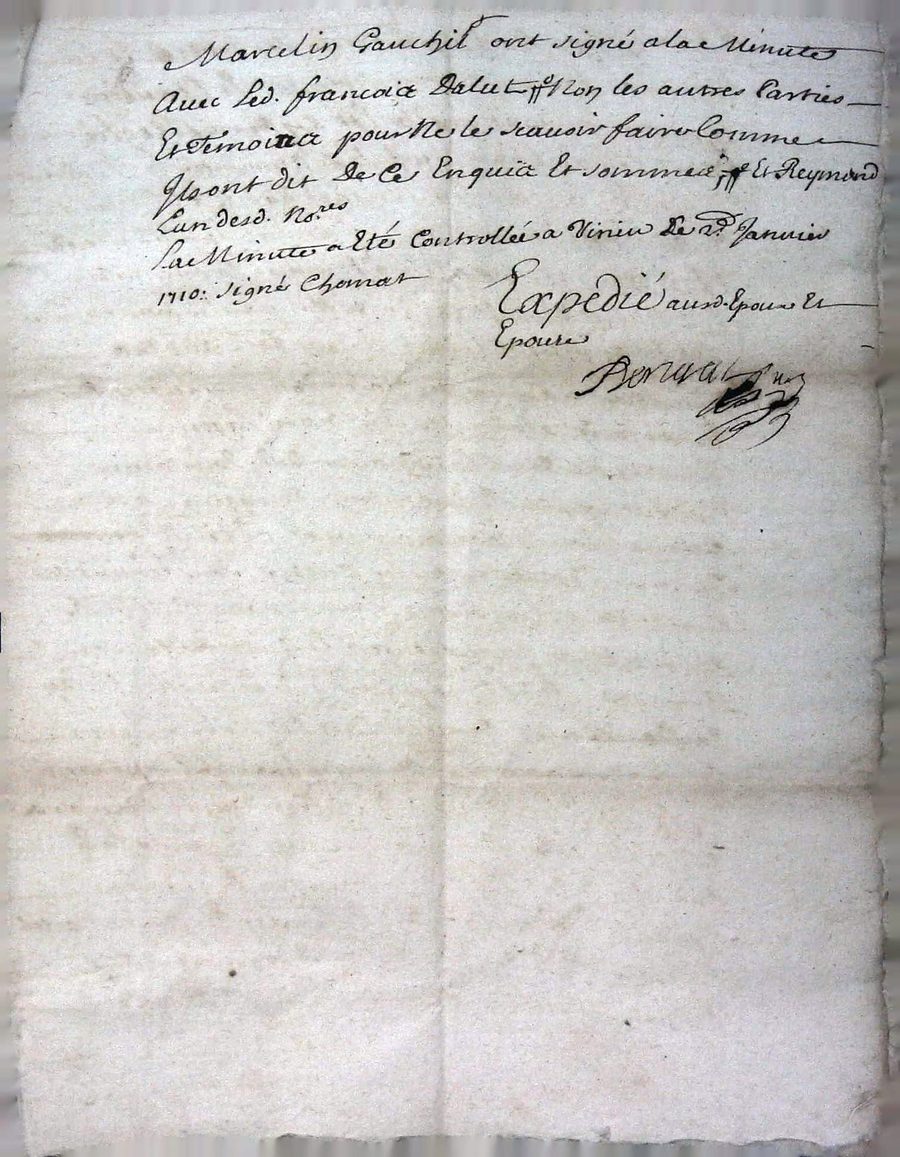 Marcelin Gauchil ont signé a la Minutte
Avec Led. francois Dalut Non les autres Parties
Et Temoins pour Ne le scavoir faire Comme
Ils ont dit De Ce Enquis Et sommés Et Reymond
L'un desd. No.res
La Minutte a Eté Controllée a Virieu Le 2.d Janvier
1710: signé Chomat
Expedié ausd. Epoux Et
Epouse